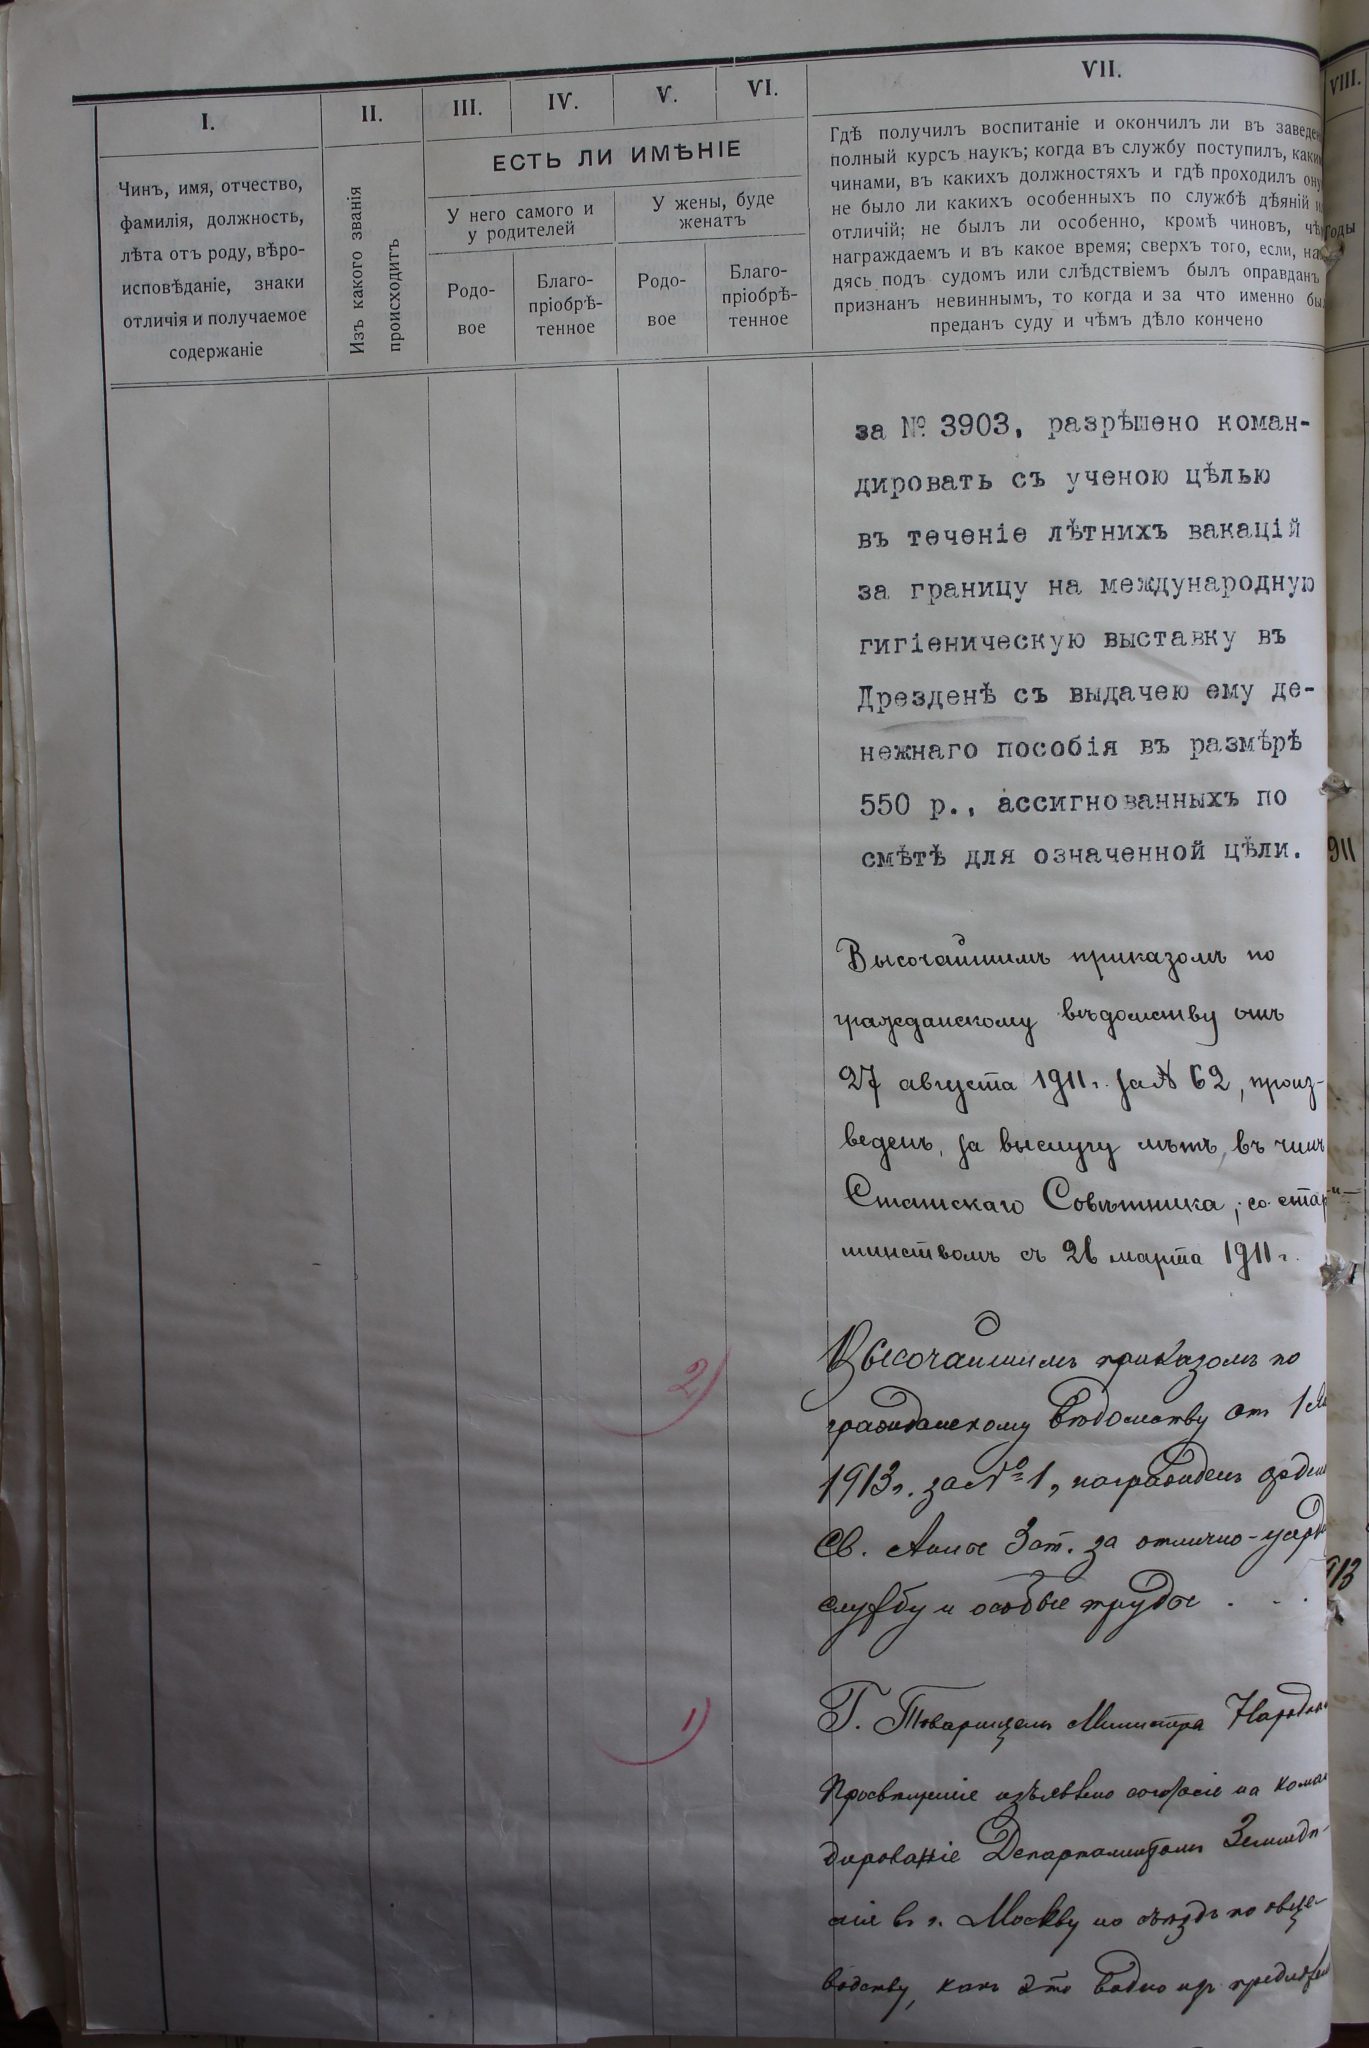 I.
II.
III.
IV.
V.
VI.
VII.
VIII.
ЕСТЬ ЛИ ИМѢНІЕ
Чинъ, имя, отчество,
фамилія, должность,
лѣта отъ роду, вѣро-
исповѣданіе, знаки
отличія и получаемое
содержаніе
Изъ какого званія
происходитъ
У него самого и
у родителей
У жены, буде
женатъ
Родо-
вое
Благо-
пріобрѣ-
тенное
Родо-
вое
Благо-
пріобрѣ-
тенное
Гдѣ получилъ воспитаніе и окончилъ ли въ заведе
полный курсъ наукъ; когда въ службу поступилъ, каки
чинами, въ какихъ должностяхъ и гдѣ проходилъ он
не было ли какихъ особенныхъ по службѣ дѣяній и
отличій; не былъ ли особенно, кромѣ чиновъ, чѣ
награждаемъ и въ какое время; сверхъ того, если, на
дясь подъ судомъ или слѣдствіемъ былъ оправданъ
признанъ невиннымъ, то когда и за что именно бы
преданъ суду и чѣмъ дѣло кончено
Годы
за № 3903, разрѣшено коман-
дировать съ ученою цѣлью
въ теченіе лѣтнихъ вакацій
за границу на международную
гигіеническую выставку въ
Дрезденѣ съ выдачею ему де-
нежнаго пособія въ размѣрѣ
550 р., ассигнованныхъ по
смѣтѣ для означенной цѣли.
911
Высочайшимъ приказомъ по
гражданскому вѣдомству отъ
27 августа 1911 г. за № 62, произ-
веденъ, за выслугу лѣтъ, въ чинъ
Статскаго Совѣтника, со стар
шинствомъ съ 26 марта 1911 г.
2)
Высочайшимъ приказомъ по
гражданскому вѣдомству отъ 1 Ян
1913 г. за № 1, награжденъ орден
Св. Анны 3 ст. за отлично-усерд
службу и особые труды . . .
913
1)
Г. Товарищемъ Министра Народн
Просвѣщенія изъявлено согласіе на коман
дированіе Департаментомъ Земледѣ-
лія въ г. Москву на съѣздъ по овце-
водству, какъ это видно изъ предложен